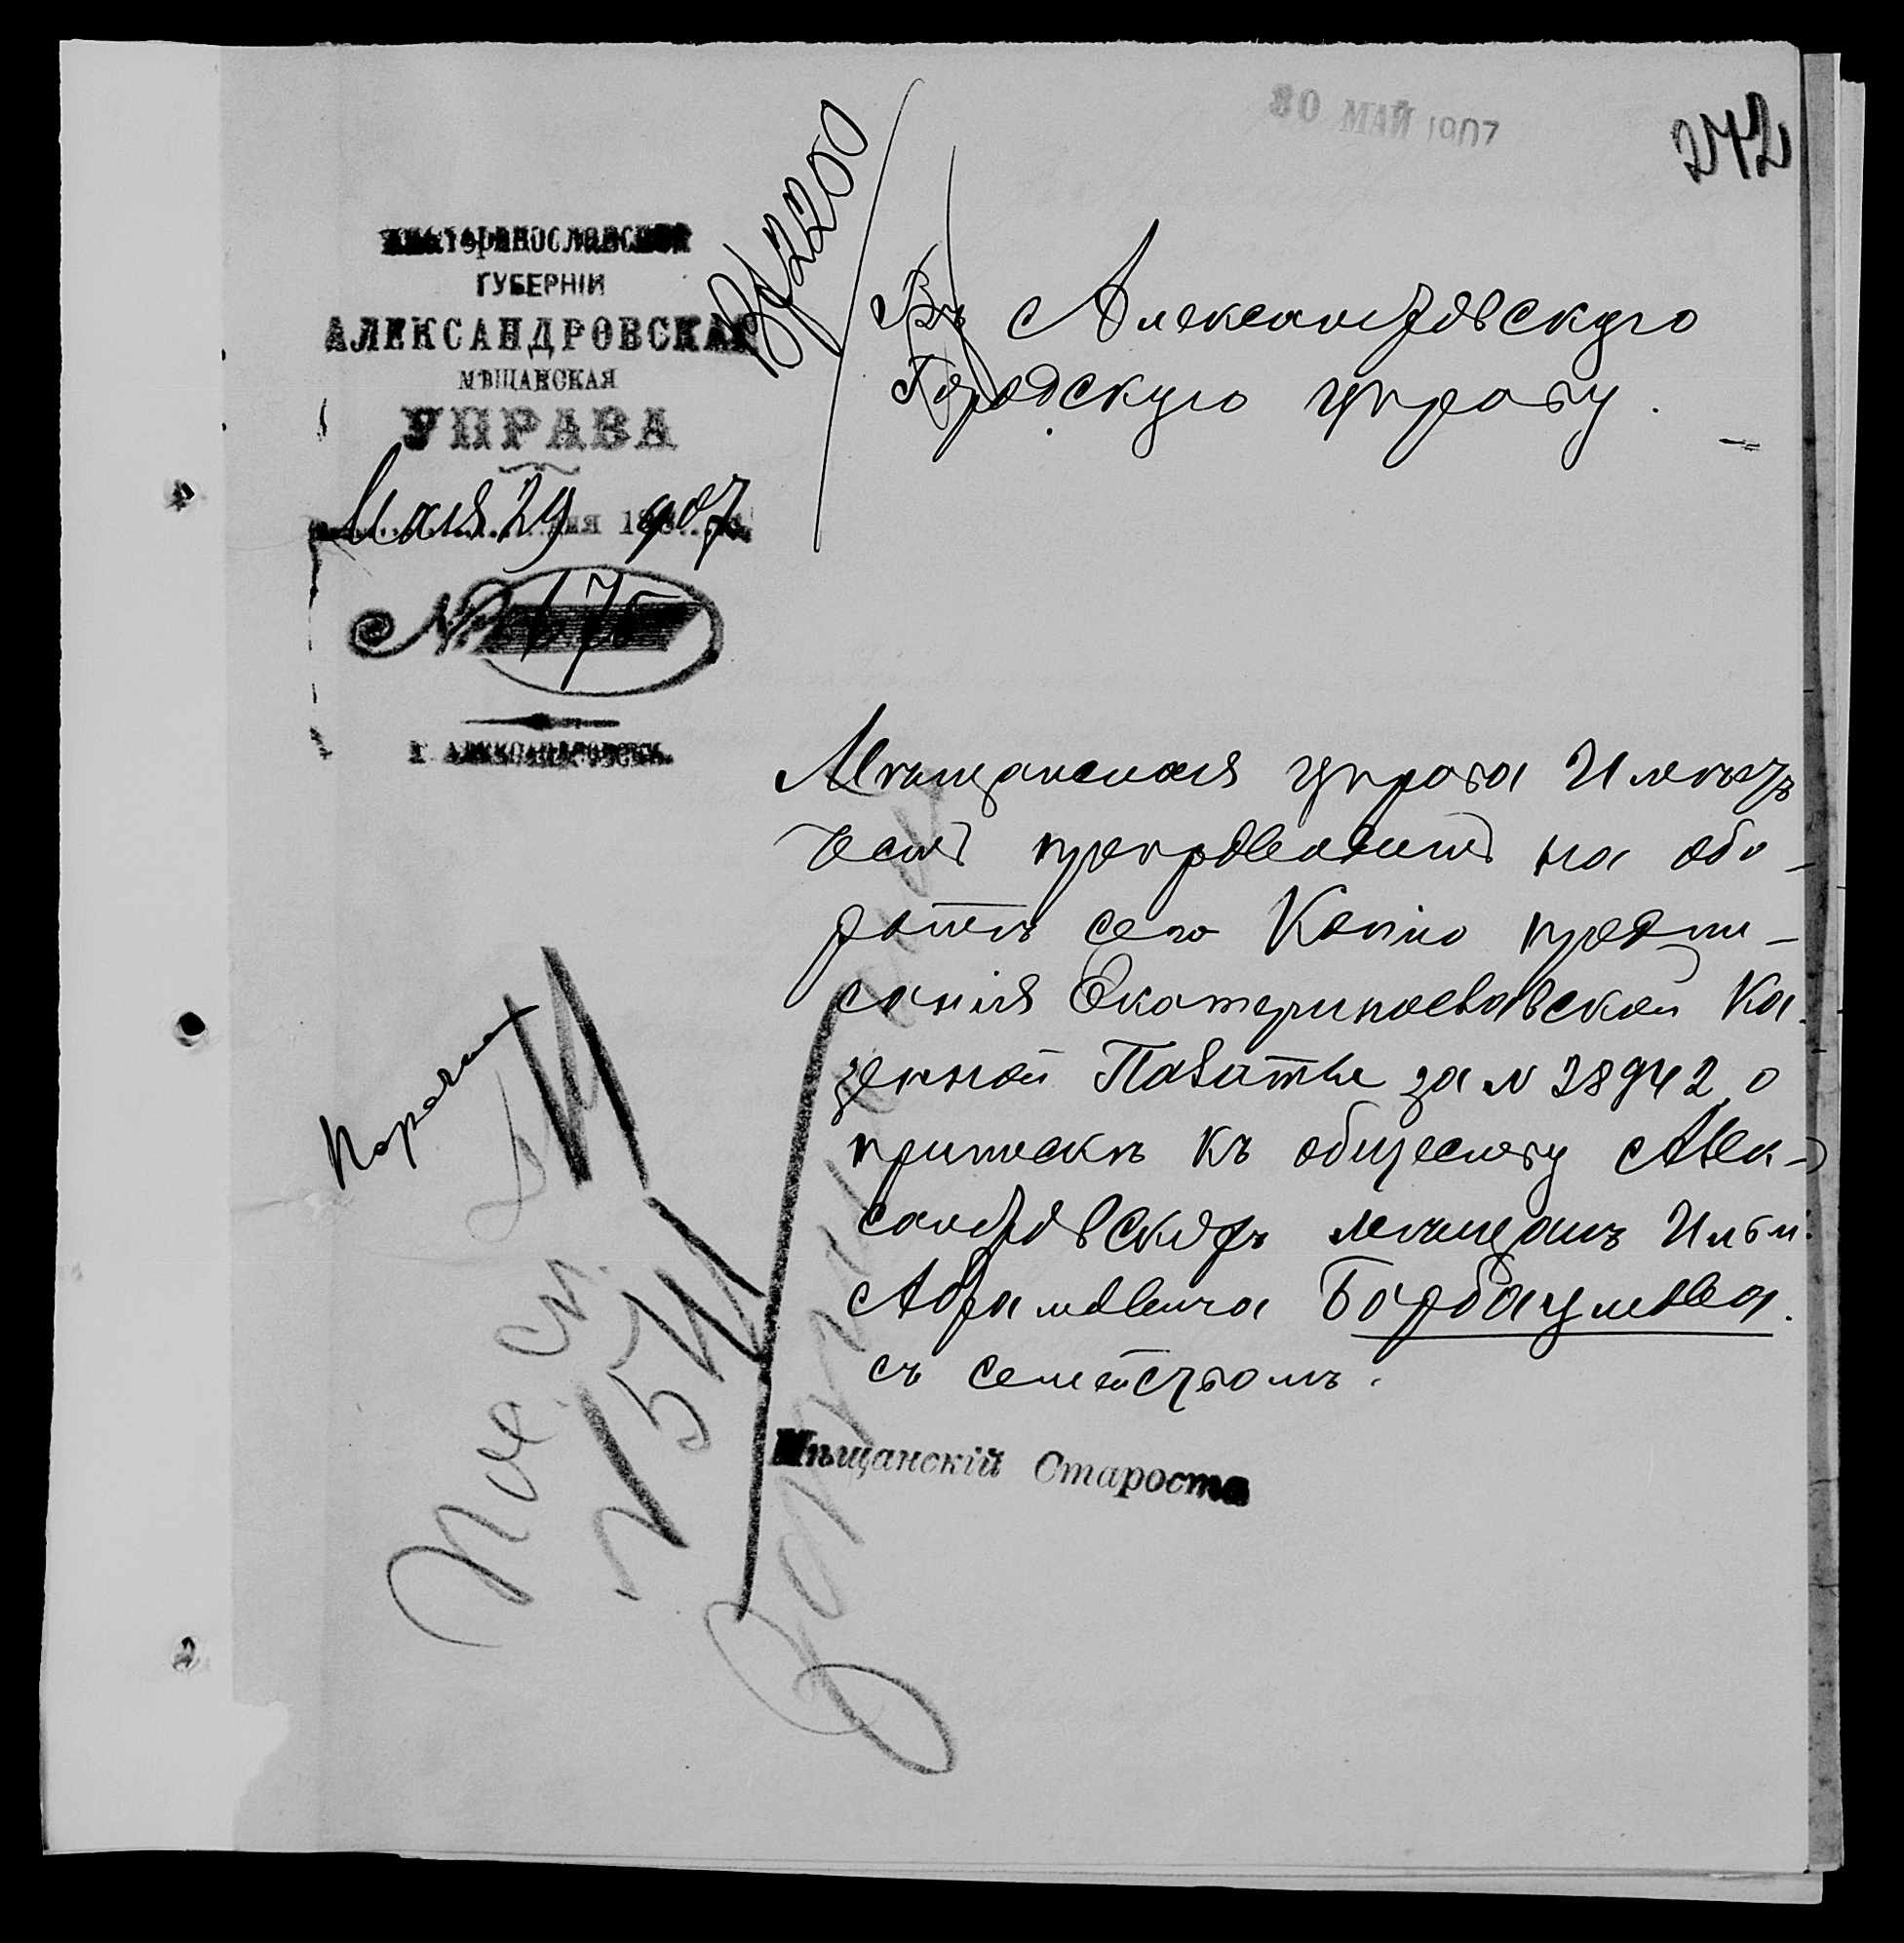 30 МАЙ 1907
242
Екатеринославской
ГУБЕРНІИ
АЛЕКСАНДРОВСКАЯ
МѢЩАНСКАЯ
УПРАВА
Мая 29 дня 1907
№ 675
Г. АЛЕКСАНДРОВСКЪ.
2200
Въ Александровскую
Городскую управу.
Мѣщанская управа Имѣетъ
честь препроводить на обо-
ротѣ сего Копію предпи-
санія Екатеринославской Ка
зенной Палаты за № 28942 о
припискѣ къ обществу Алек-
сандровскихъ мѣщанъ Ильи
Абрамовича Барбаумова.
съ семействомъ.
Мѣщанскій Староста